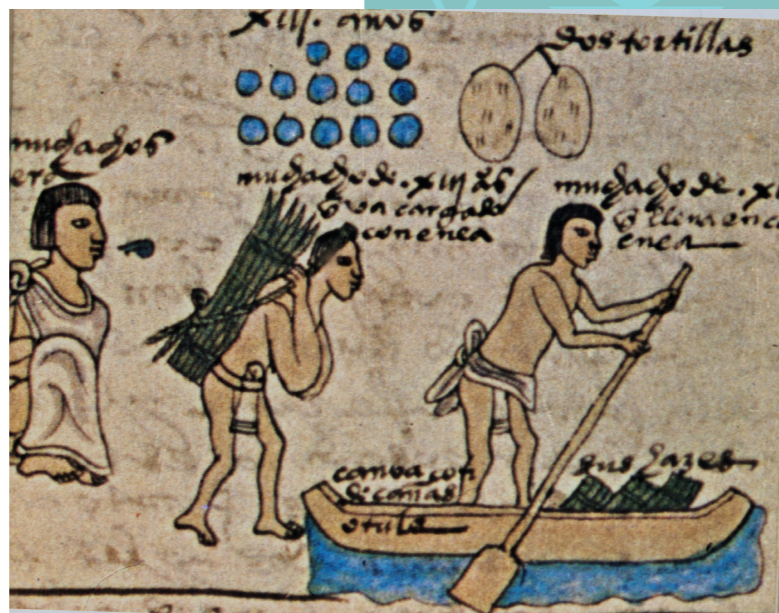 xiij. años
dos tortillas
muchachos
muchacho de. xiij añs
q̃ va cargado
con enea
muchacho de. x
q̃ lleva en ca
enea
canoa con
de cañas
o tule
sus hazes